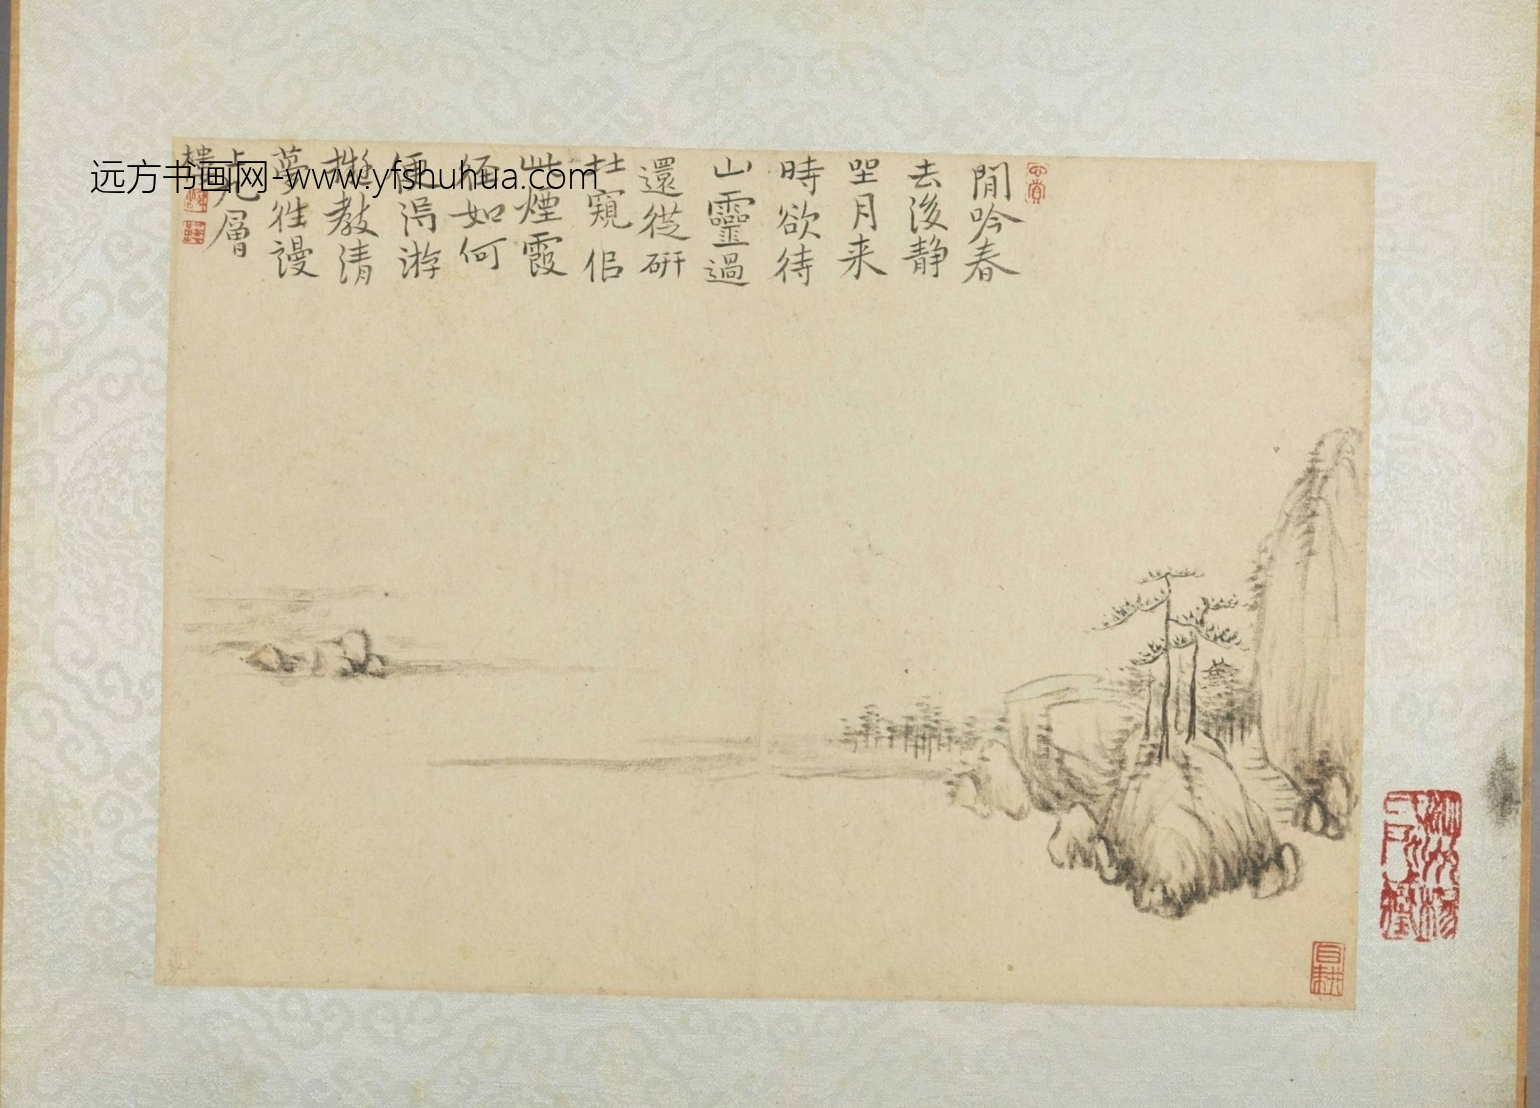 閒吟春
去後靜
坐月来
時欲待
山靈過
還從研
杜窺侶
此煙霞
如何
便渴游
擬教清
夢往謾
九層
樓
远方书画网-www.yfshuhua.com